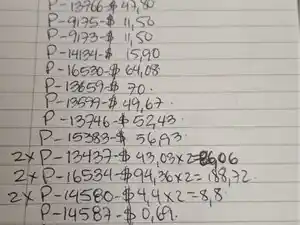 P-13766-$ 47,80
P-9175-$ 11,50
P-9173-$ 11,50
P-14134-$ 15,90
P-16530-$ 64,08
P-13659-$ 70.
P-13599-$ 49,67.
P-13746-$ 52,43
P-15383-$ 56,93.
2x P-13437-$ 43,03x2=86,06
2x P-16534-$ 94,36x2=188,72.
2x P-14580-$ 4,4x2=8,8.
P-14587-$ 0,69.